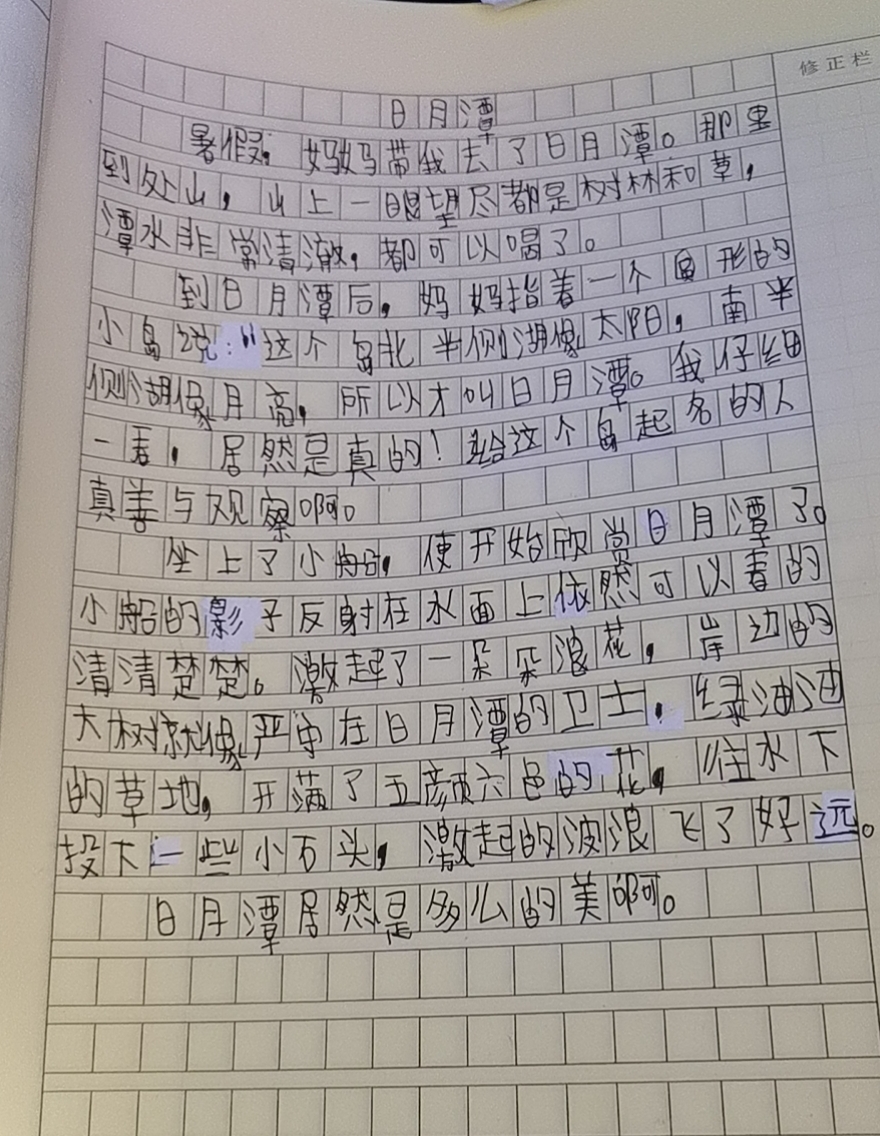 修正栏
日月潭
暑假，妈妈带我去了日月潭。那里
到处山，山上一眼望尽都是树林和草，
潭水非常清澈，都可以喝了。
到日月潭后，妈妈指着一个圆形的
小岛说："这个岛北半侧湖像太阳，南半
侧湖像月亮，所以才叫日月潭。我仔细
一看，居然是真的！给这个岛起名的人
真善与观察啊。
坐上了小船，便开始欣赏日月潭了。
小船的影子反射在水面上依然可以看的
清清楚楚。激起了一朵朵浪花，岸边的
大树就像严守在日月潭的卫士，绿油油
的草地，开满了五颜六色的花，往水下
投下一些小石头，激起的波浪飞了好远。
日月潭居然是多么的美啊。